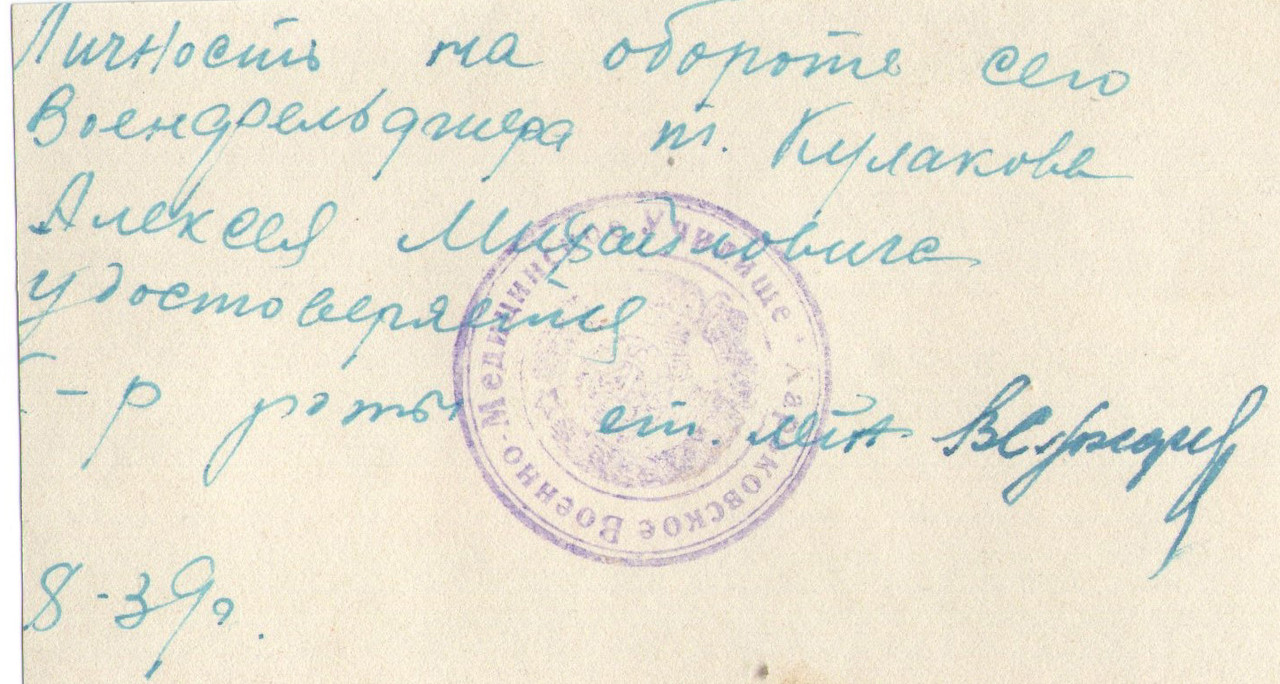 Личность на обороте сего
Военфельдшера т. Кулакова
Алексея Михайловича
удостоверяется
К-р роты ст. лейт
8-39г.
Харьковское Военно-Медицинское Училище